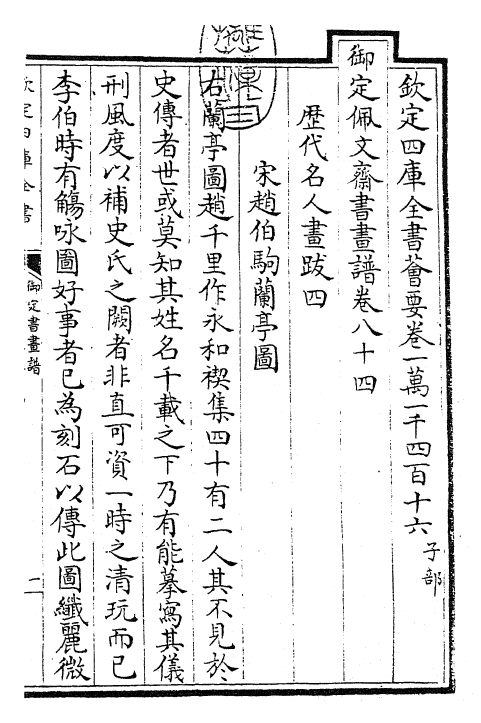 欽定四庫全書薈要卷一萬一千四百十六 子部
御定佩文齋書畫譜卷八十四
歴代名人畫跋四
宋趙伯駒蘭亭圖
右蘭亭圖趙千里作永和禊集四十有二人其不見於
史傳者世或莫知其姓名千載之下乃有能摹寫其儀
刑風度以補史氏之闕者非直可資一時之清玩而已
李伯時有觴咏圖好事者已為刻石以傳此圖纖麗微
欽定四庫全書
御定書畫譜